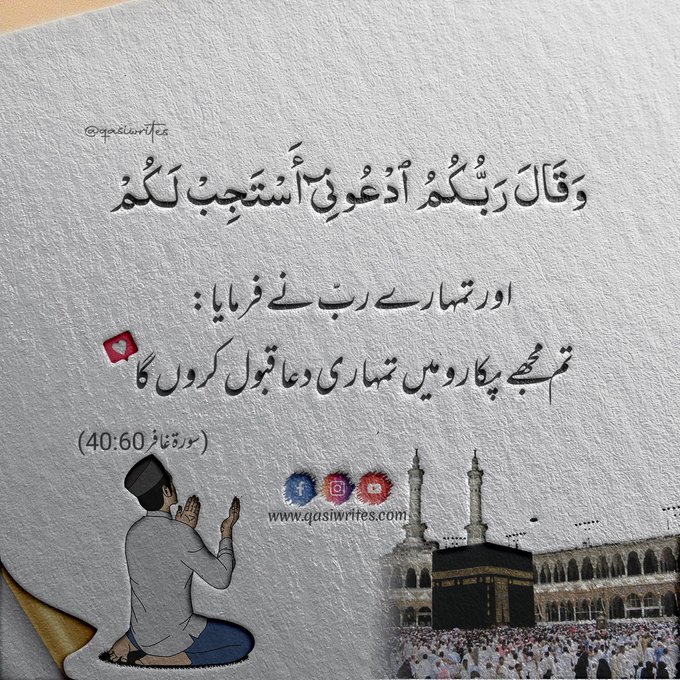 @qasiwrites
وَقَالَ رَبُّكُمُ ٱدْعُونِىٓ أَسْتَجِبْ لَكُمْ
اور تمہارے ربّ نے فرمایا :
تم مجھے پکارو میں تمہاری دعا قبول کروں گا
(سورۃ غافر 40:60)
www.qasiwrites.com